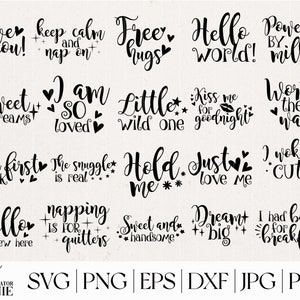 ve
ou!
keep calm
and
nap on
Free
hugs
Hello
world!
Power
By
mil
weet
reams
I am
SO
loved
Little
wild one
Kiss me
for
goodnight
Wort
the
wa
first
The snuggle
is real
Hold
me
Just
love me
I wok
cut
llo
ew here
napping
is for
quitters
Sweet and
handsome
Dream
big
I had b
for
breakf
ATOR
HIE
SVG | PNG | EPS | DXF | JPG | P